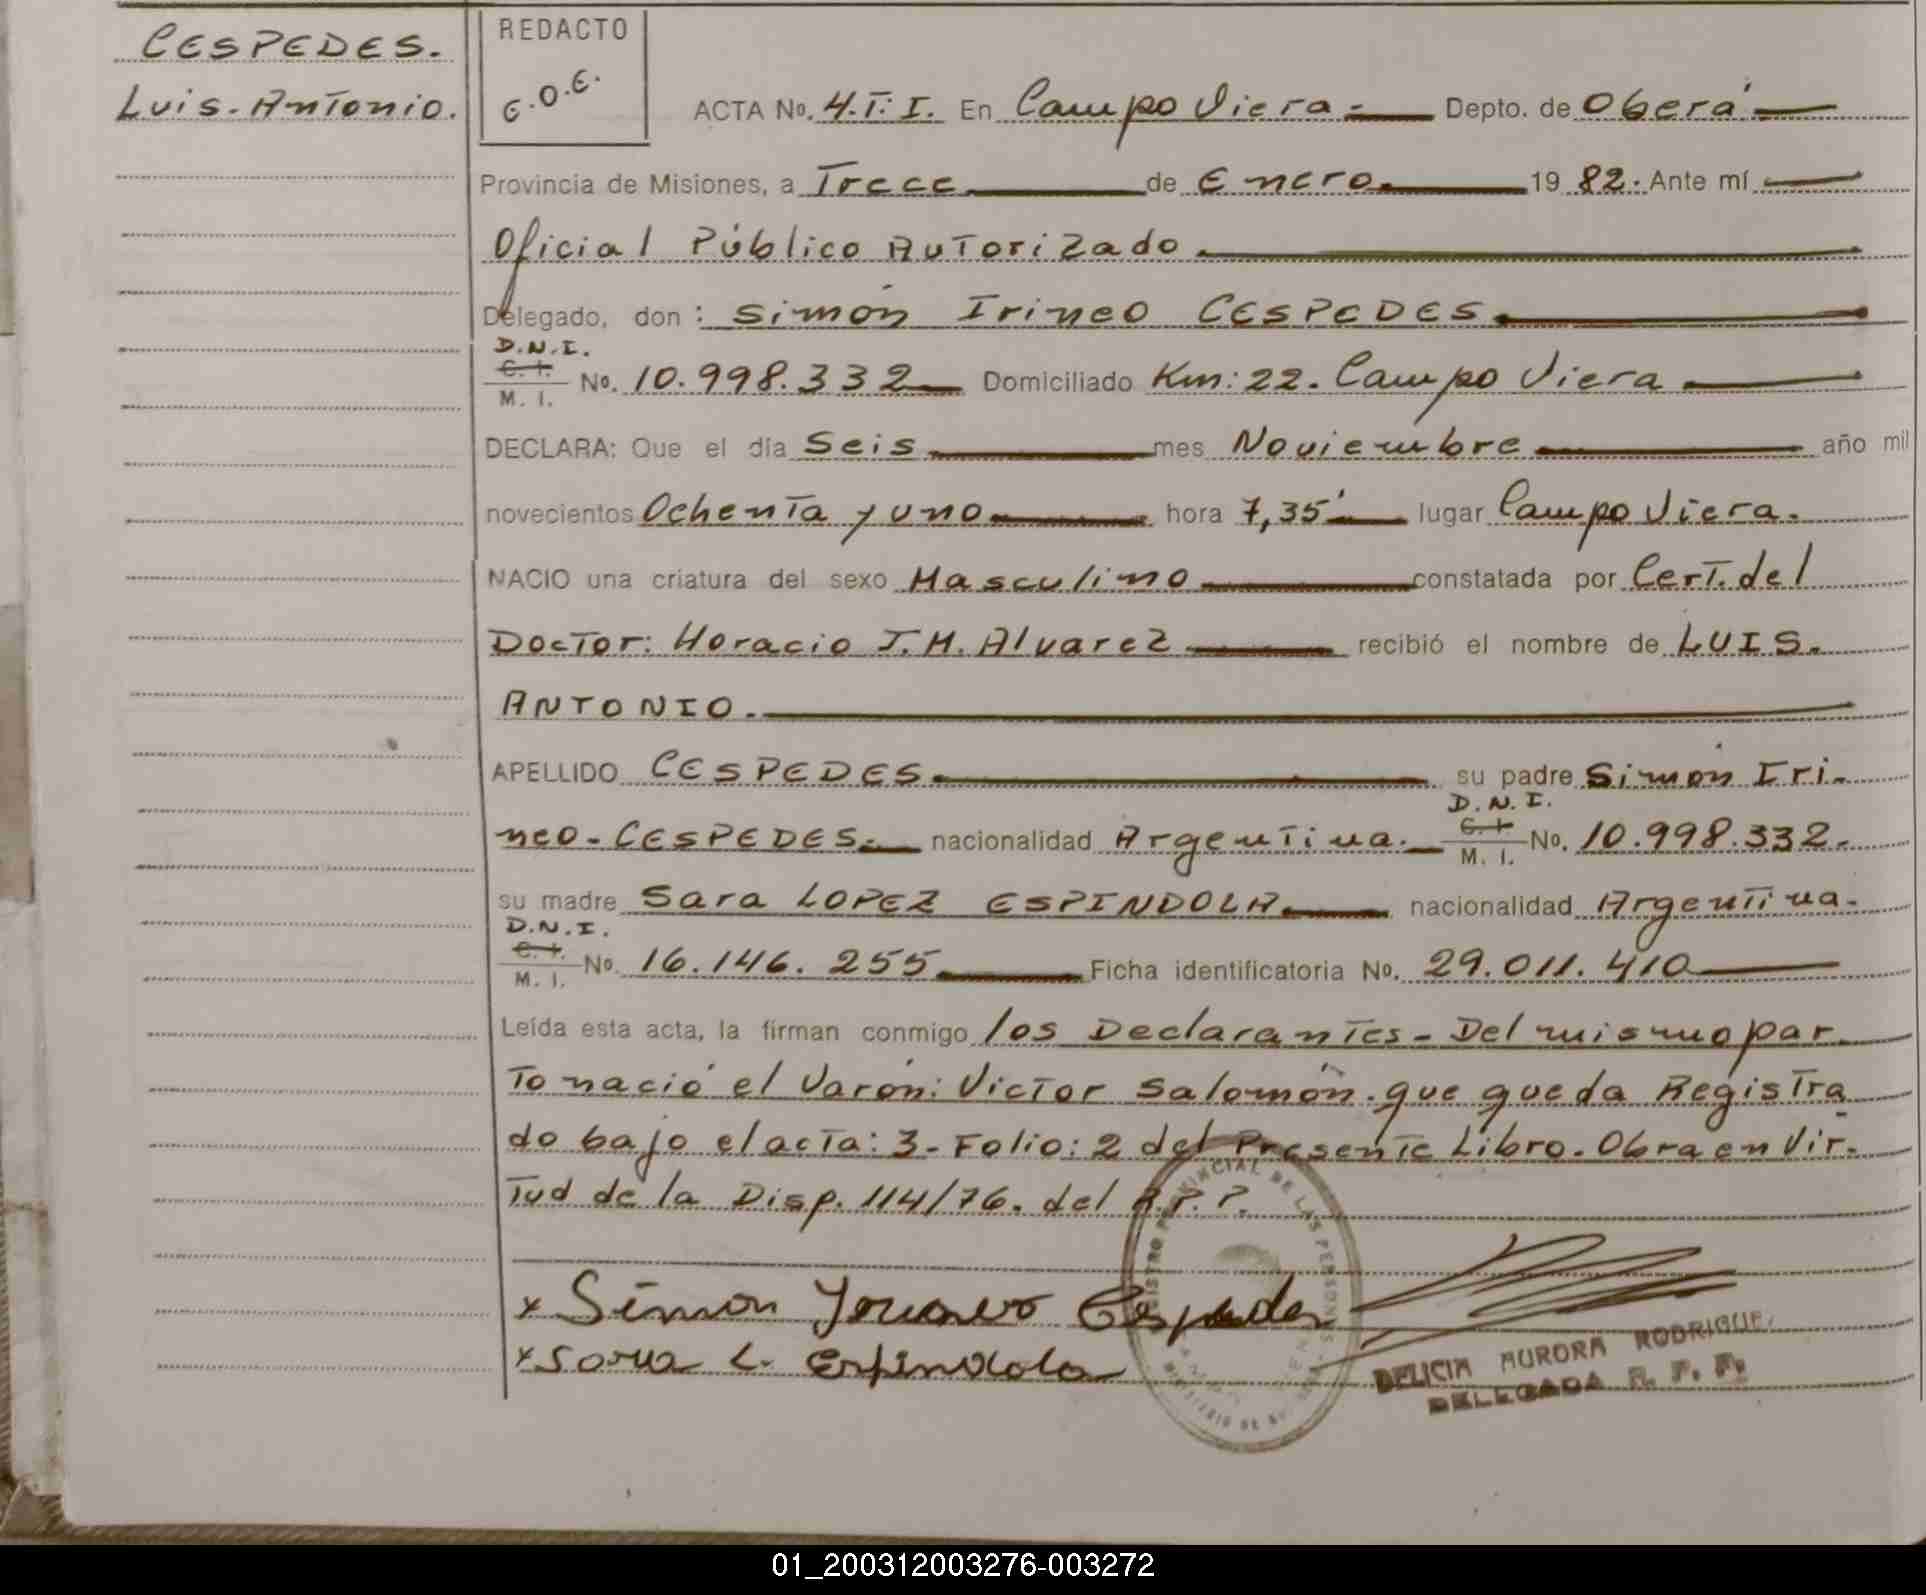 CESPEDES.
Luis-Antonio.
REDACTO
E.O.E.
ACTA No. 4.T:I. En Campo Viera.- Depto. de Oberá
Provincia de Misiones, a Trece de Enero. 19 82. Ante mí
Oficial Público Autorizado.
Delegado, don: Simón Irineo CESPEDES.
D.N.I.
C. I.
M. I. No. 10.998.332 Domiciliado Km: 22. Campo Viera
DECLARA: Que el día Seis mes Noviembre año mil
novecientos Ochenta y uno hora 7,35' lugar Campo Viera.
NACIO una criatura del sexo Masculino constatada por Cert. del
Doctor: Horacio J.M. Alvarez recibió el nombre de LUIS.
ANTONIO.
APELLIDO CESPEDES su padre Simón Iri-
neo-CESPEDES. nacionalidad Argentina. D.N.I. C. I. M. I. No. 10.998.332.
su madre Sara LOPEZ ESPINDOLA nacionalidad Argentina.
D.N.I.
C. I.
M. I. No. 16.146.255 Ficha identificatoria No. 29.011.410
Leída esta acta, la firman conmigo los Declarantes- Del mismo par
to nació el Varón: Victor Salomón. que queda Registra
do bajo el acta: 3- Folio: 2 del Presente Libro. Obra en Vir-
tud de la Disp. 114/76. del R.P.P.
x Simon Irineo Cespedes
x Sara L. Espindola
PROVINCIAL DE LAS PERSONAS
DELICIA AURORA RODRIGUE
DELEGADA R. P. P.
01_200312003276-003272